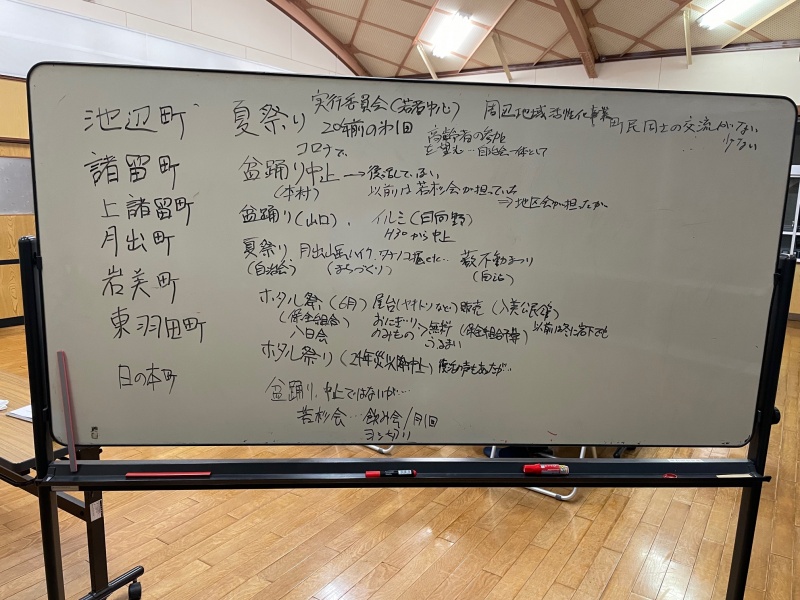 池辺町 夏祭り 実行委員会(若者中心) 周辺地域活性化事業 町民同士の交流がない
20年前の第1回 高齢者の参加 少ない
コロナで を望む 一自治会一体として
諸留町 盆踊り中止→復活していない
(本村) 以前は若杉会が担っていた
⇒地区会が担ったが
上諸留町 盆踊り(山口)、イルミ(日向野)
H30から中止
月出町 夏祭り、月出山岳ハイク、タケノコ掘り 藪不動まつり
(自治会) (まちづくり)
岩美町 ホタル祭(6月) 屋台(ヤキトリなど)販売
(保全組合) おにぎり
のみもの>無料
八日会
東羽田町 ホタル祭り(24年災以降中止) 復活の声もあったが…
日の本町 盆踊り、中止ではないが…
若杉会…飲み会/月1回